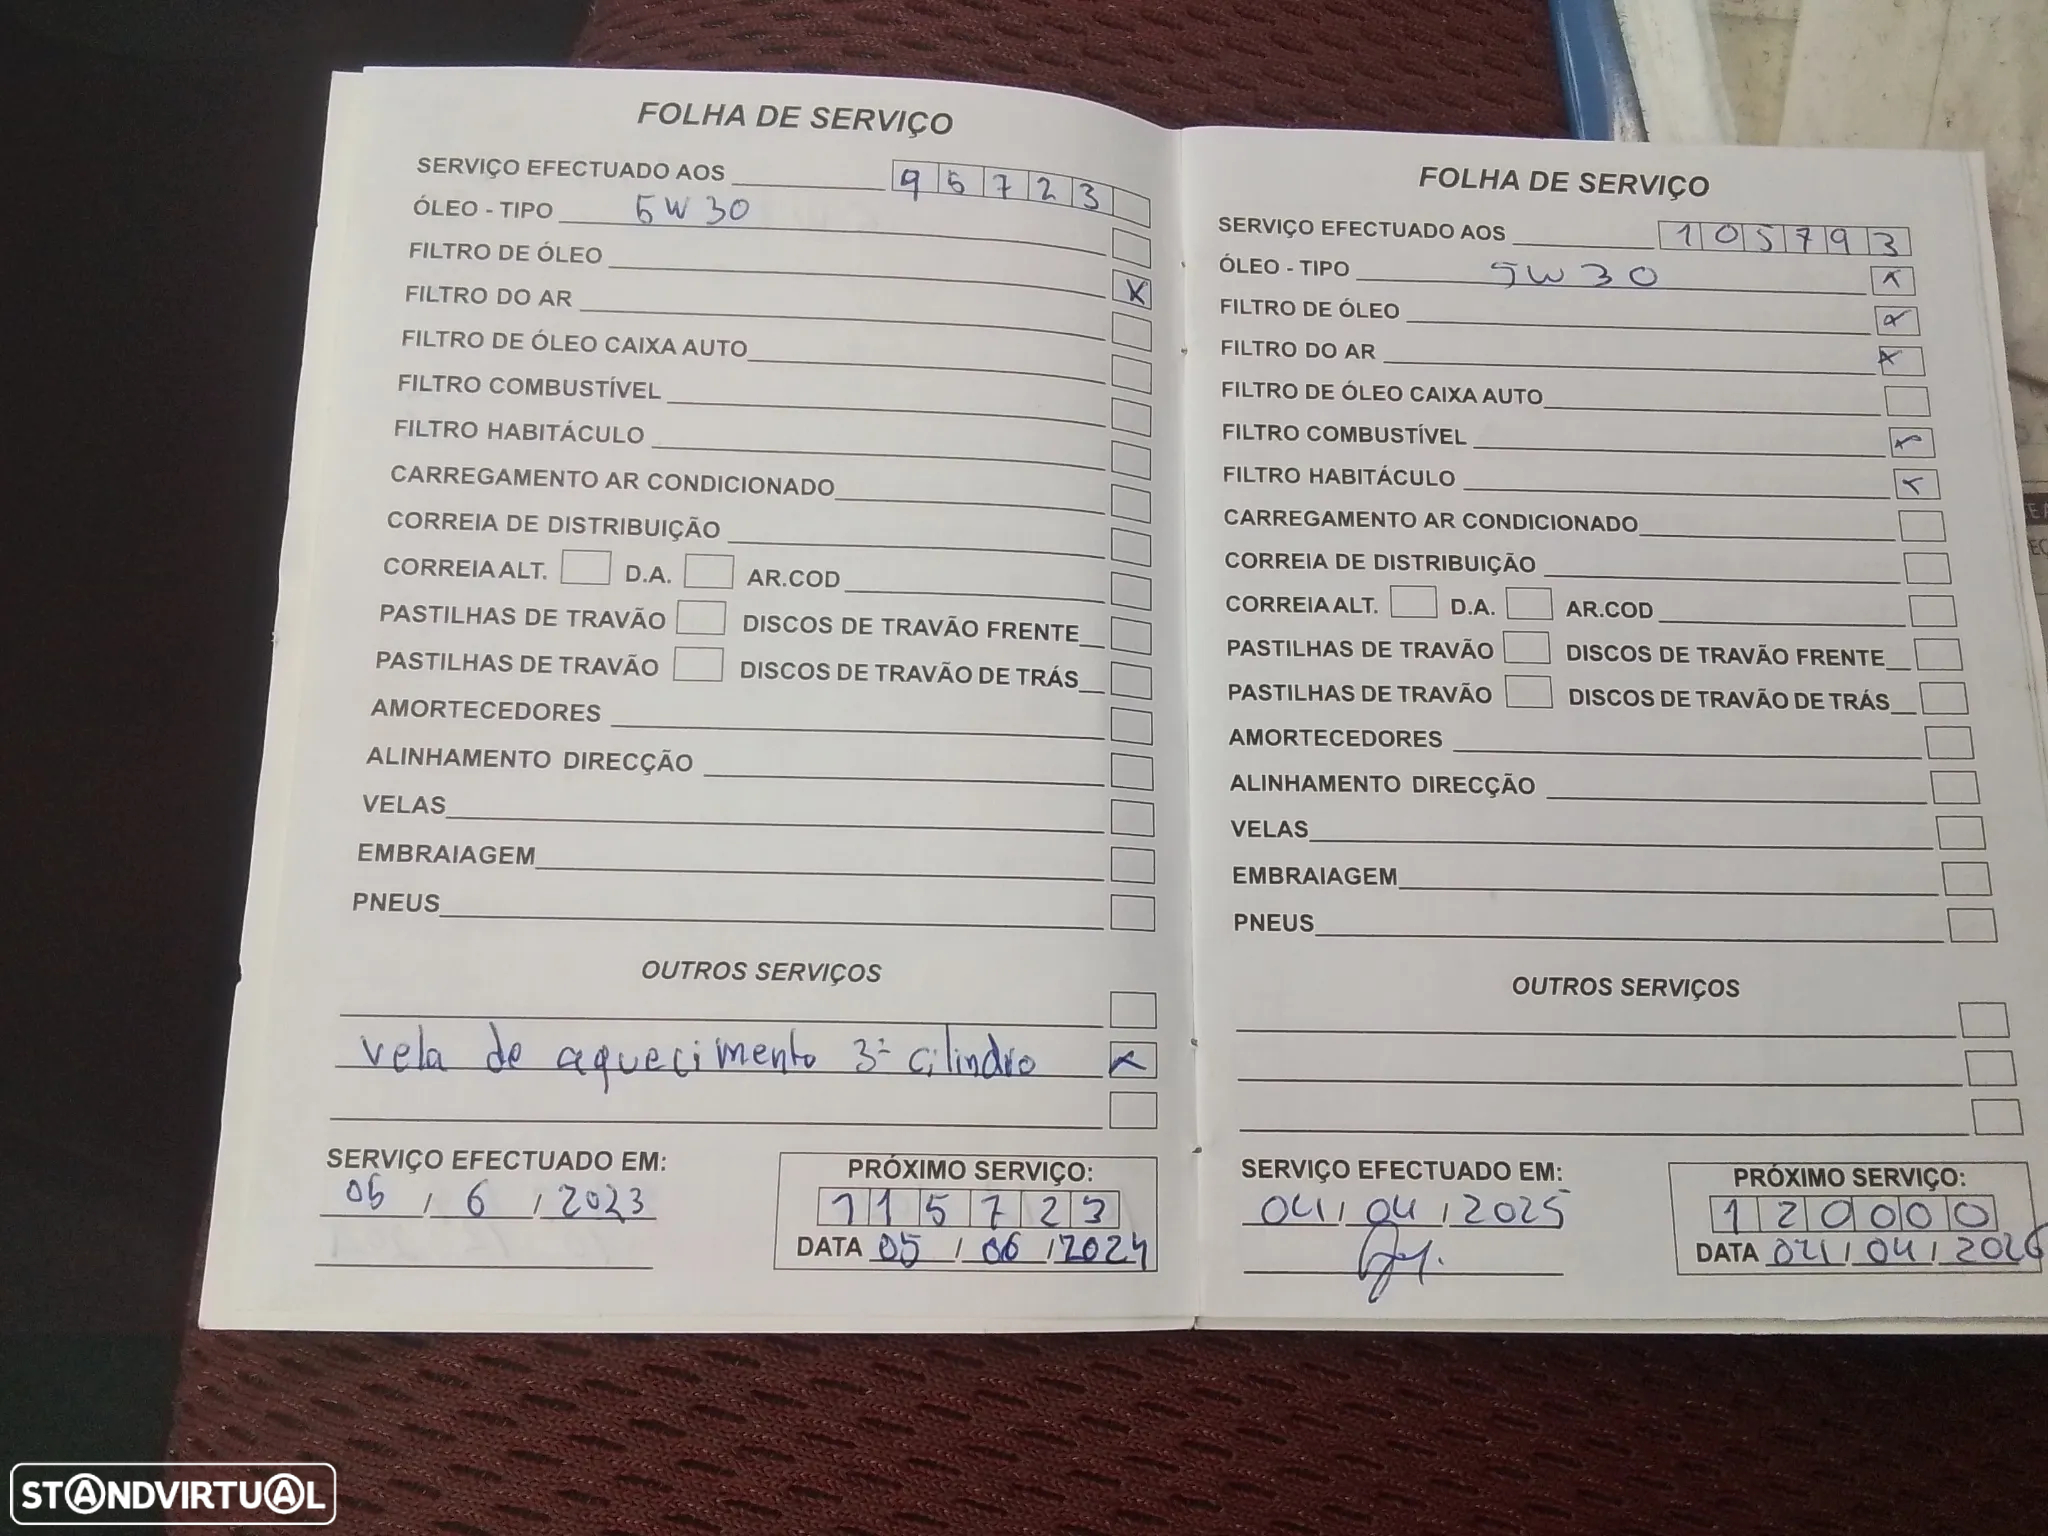 FOLHA DE SERVIÇO
SERVIÇO EFECTUADO AOS 95723
ÓLEO - TIPO 5W30
FILTRO DE ÓLEO X
FILTRO DO AR
FILTRO DE ÓLEO CAIXA AUTO
FILTRO COMBUSTÍVEL
FILTRO HABITÁCULO
CARREGAMENTO AR CONDICIONADO
CORREIA DE DISTRIBUIÇÃO
CORREIA ALT. D.A. AR.COD
PASTILHAS DE TRAVÃO DISCOS DE TRAVÃO FRENTE
PASTILHAS DE TRAVÃO DISCOS DE TRAVÃO DE TRÁS
AMORTECEDORES
ALINHAMENTO DIRECÇÃO
VELAS
EMBRAIAGEM
PNEUS
OUTROS SERVIÇOS
vela de aquecimento 3º cilindro X
SERVIÇO EFECTUADO EM:
05 / 6 / 2023
PRÓXIMO SERVIÇO:
115723
DATA 05 / 06 / 2024
FOLHA DE SERVIÇO
SERVIÇO EFECTUADO AOS 105793
ÓLEO - TIPO 5W30 X
FILTRO DE ÓLEO X
FILTRO DO AR X
FILTRO DE ÓLEO CAIXA AUTO
FILTRO COMBUSTÍVEL X
FILTRO HABITÁCULO X
CARREGAMENTO AR CONDICIONADO
CORREIA DE DISTRIBUIÇÃO
CORREIA ALT. D.A. AR.COD
PASTILHAS DE TRAVÃO DISCOS DE TRAVÃO FRENTE
PASTILHAS DE TRAVÃO DISCOS DE TRAVÃO DE TRÁS
AMORTECEDORES
ALINHAMENTO DIRECÇÃO
VELAS
EMBRAIAGEM
PNEUS
OUTROS SERVIÇOS
SERVIÇO EFECTUADO EM:
04 / 04 / 2025
PRÓXIMO SERVIÇO:
120000
DATA 04 / 04 / 2026
STANDVIRTUAL